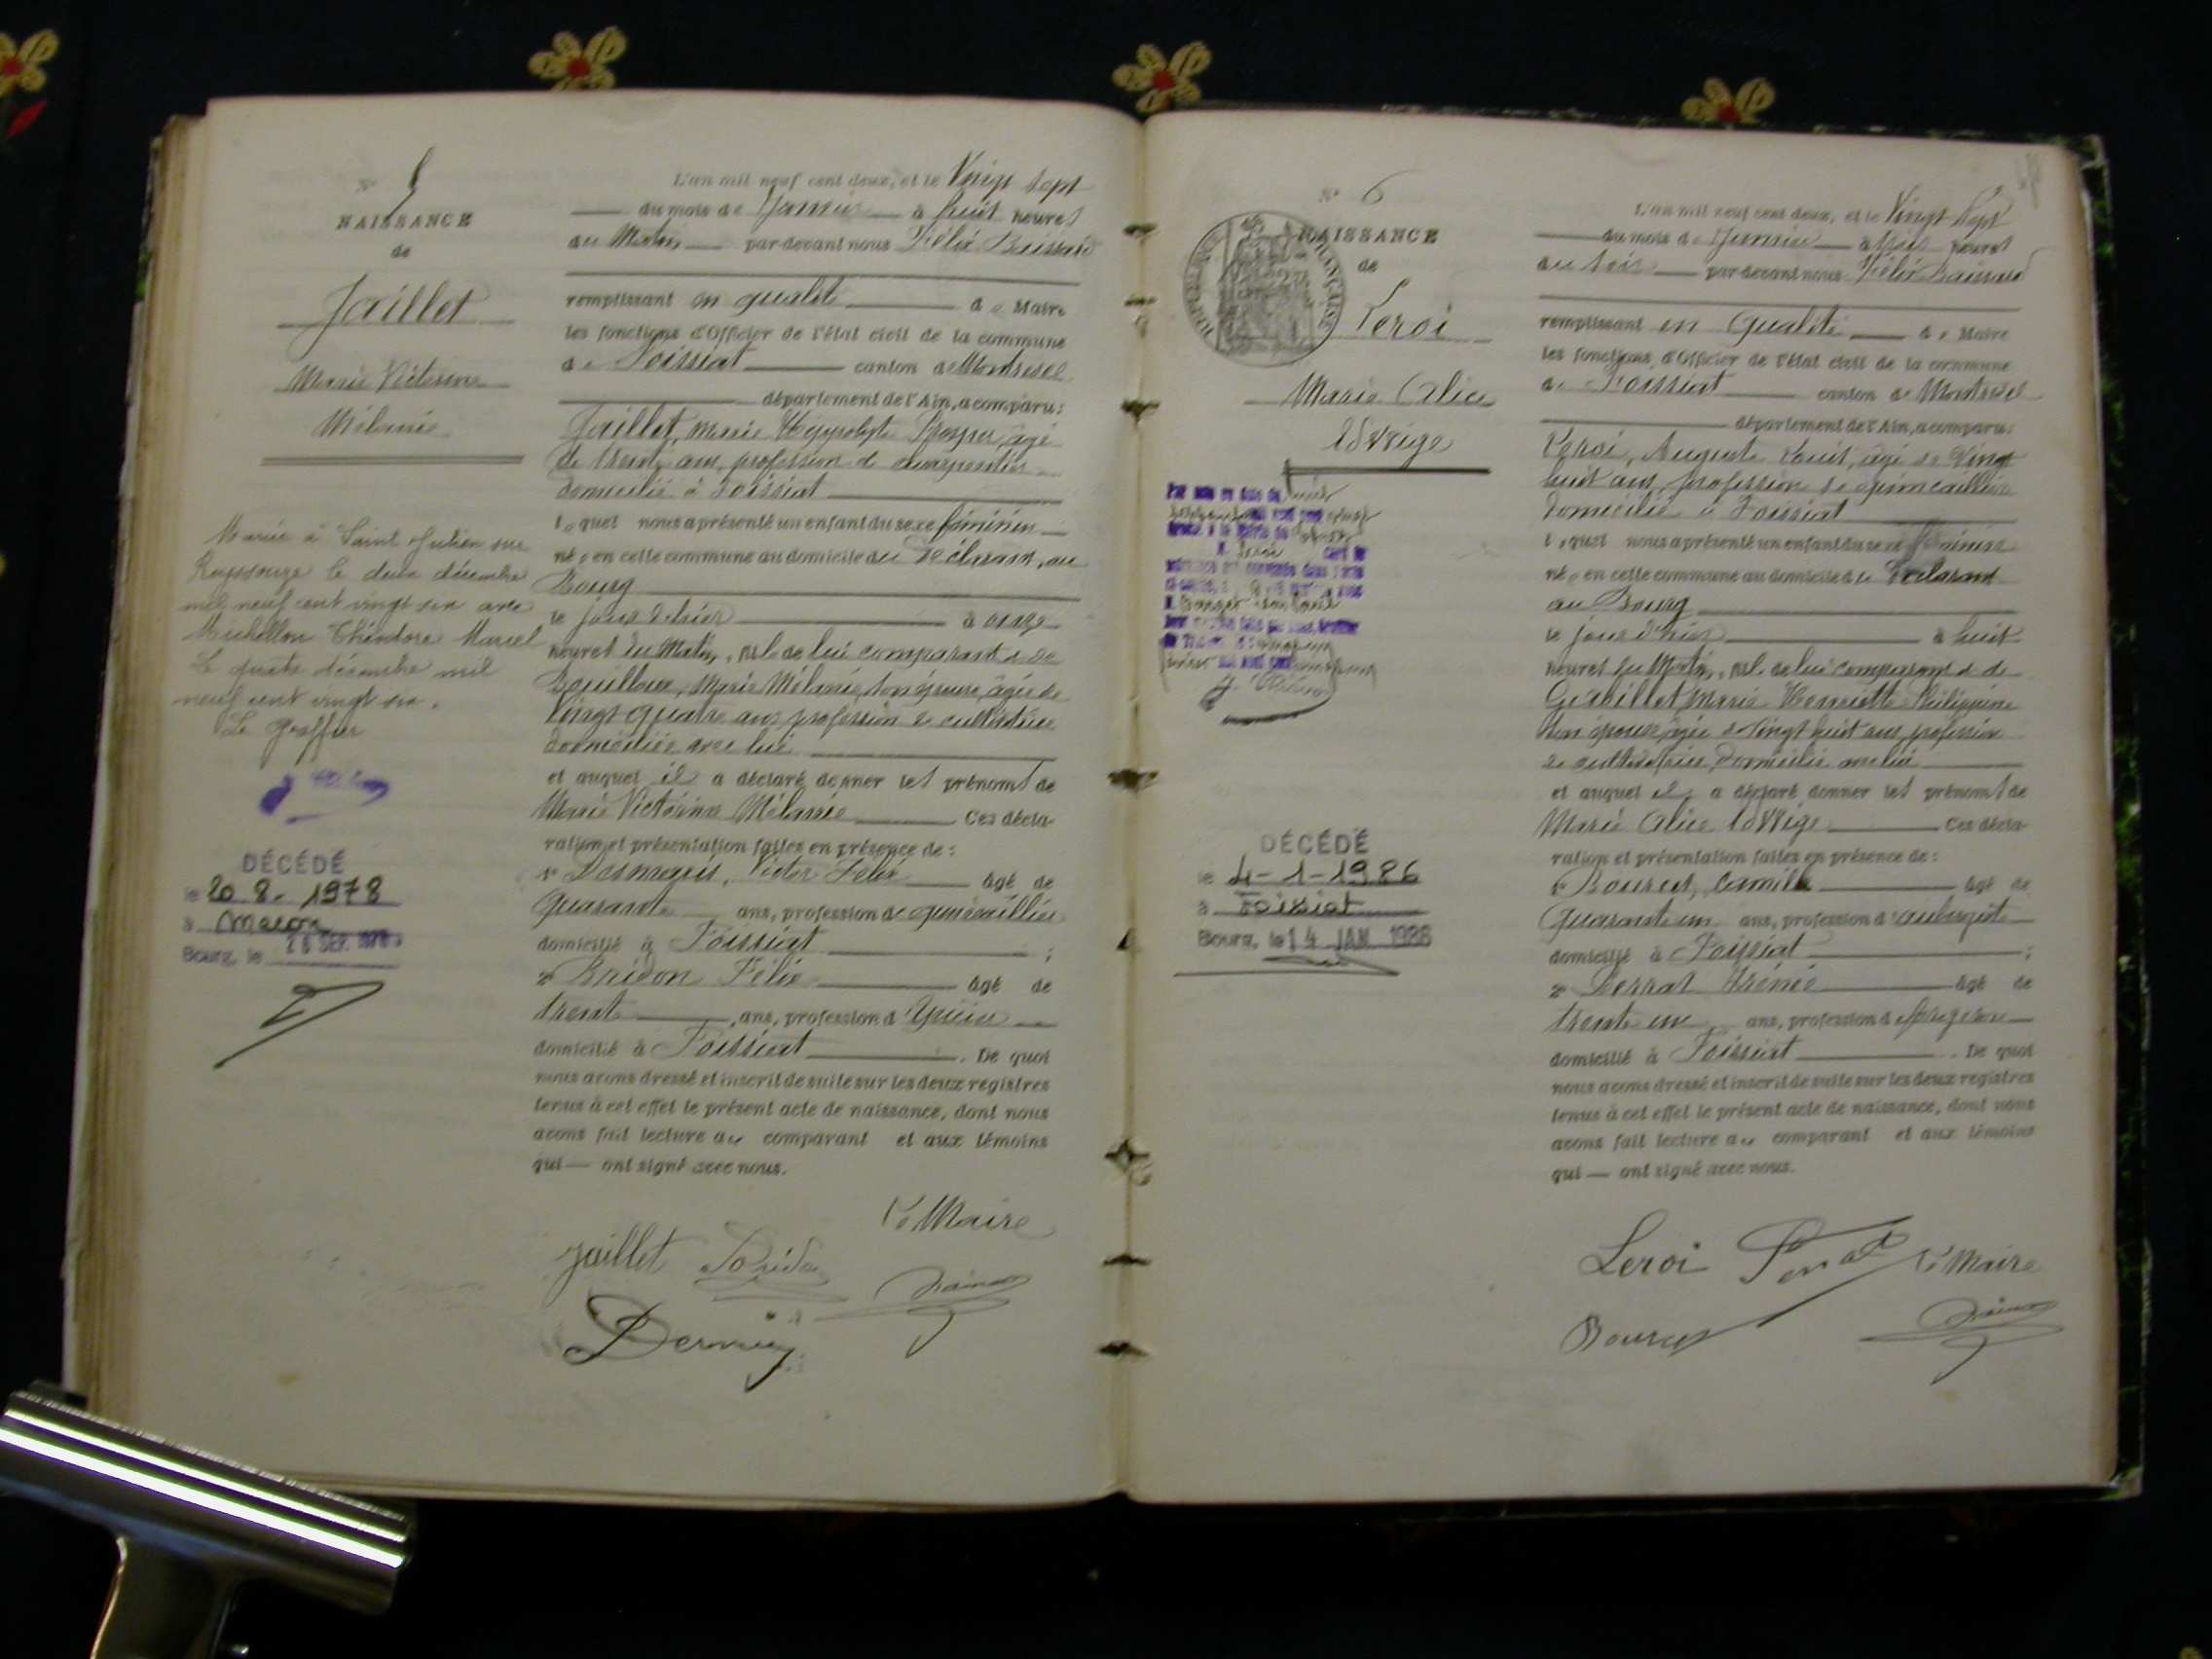 N° 5
NAISSANCE
de
Jaillet
Marie Victorine
Mélanie
Mariée à Saint Julien sur
Reyssouze le deux décembre
mil neuf cent vingt six avec
Michellon Théodore Marcel
Le quatre décembre mil
neuf cent vingt six.
Le Greffier
DÉCÉDÉ
le 20.8.1978
à Macon
Bourg, le 26 SEP. 1978
L'an mil neuf cent deux, et le Vingt sept
du mois de Janvier à huit heures
du Matin par-devant nous Félix
remplissant en qualité de Maire
les fonctions d'Officier de l'état civil de la commune
de Foissiat canton de Montrevel
département de l'Ain, a comparu:
Jaillet, Marie Hyppolyte Prosper, âgé
de trente ans, profession de charpentier
domicilié à Foissiat
lequel nous a présenté un enfant du sexe féminin
née en cette commune au domicile du Déclarant, au
Bourg
le jour d'hier à onze
heures du Matin, fille de lui comparant et de
Bouilloux, Marie Mélanie, son épouse, âgée de
Vingt quatre ans profession de cultivatrice
domiciliée avec lui
et auquel il a déclaré donner les prénoms de
Marie Victorine Mélanie Ces décla-
ration et présentation faites en présence de:
1° Desmaris, Victor Félix âgé de
Quarante ans, profession de quincaillier
domicilié à Foissiat ;
2° Bridon Félix âgé de
trente ans, profession d
domicilié à Foissiat. De quoi
nous avons dressé et inscrit de suite sur les deux registres
tenus à cet effet le présent acte de naissance, dont nous
avons fait lecture au comparant et aux témoins
qui — ont signé avec nous.
Le Maire
Jaillet
N° 6
NAISSANCE
de
Leroi
Marie Alice
Edwige
DÉCÉDÉ
le 4-1-1986
à Foissiat
Bourg, le 14 JAN. 1986
L'an mil neuf cent deux, et le Vingt sept
du mois de Janvier à heures
du soir par-devant nous Félix
remplissant en qualité de Maire
les fonctions d'Officier de l'état civil de la commune
de Foissiat canton de Montrevel
département de l'Ain, a comparu:
Leroi, Auguste Louis, âgé de Vingt
huit ans, profession de quincaillier
domicilié à Foissiat
lequel nous a présenté un enfant du sexe féminin
née en cette commune au domicile du Déclarant
au Bourg
le jour d'hier à huit
heures du Matin, fille de lui comparant et de
Marie Henriette Philippine
son épouse, âgée de Vingt huit ans, profession
de cultivatrice, domiciliée avec lui
et auquel il a déclaré donner les prénoms de
Marie Alice Edwige Ces décla-
ration et présentation faites en présence de:
1° Bourcet, Camille âgé de
Quarante un ans, profession d'aubergiste
domicilié à Foissiat ;
2° Perrat Irénée âgé de
trente un ans, profession de forgeron
domicilié à Foissiat. De quoi
nous avons dressé et inscrit de suite sur les deux registres
tenus à cet effet le présent acte de naissance, dont nous
avons fait lecture au comparant et aux témoins
qui — ont signé avec nous.
Leroi Perrat Le Maire
Bourcet